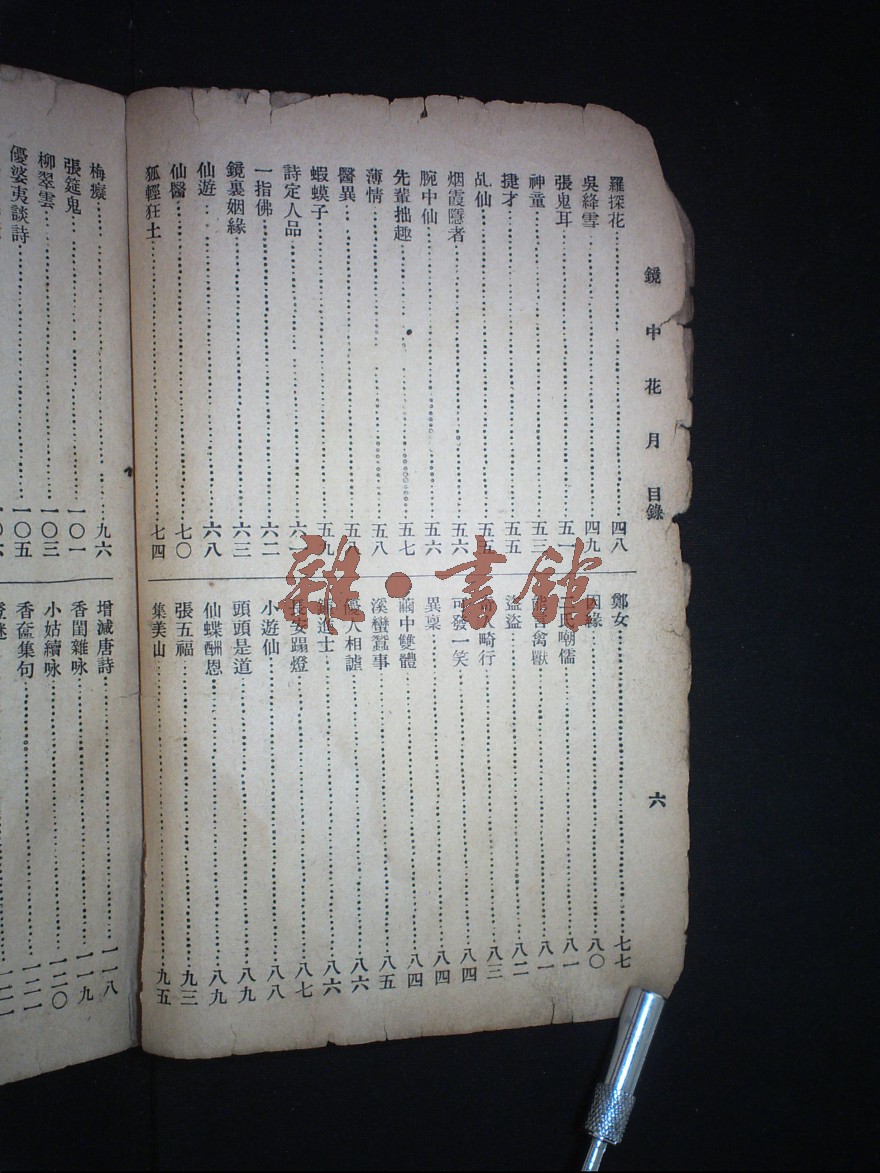 鏡中花月目錄
六
羅探花……四八
吳絳雪……四九
張鬼耳……五一
神童……五三
捷才……五五
乩仙……五五
烟霞隱者……五六
腕中仙……五六
先輩拙趣……五七
薄情……五八
醫異……五八
蝦蟆子……五九
詩定人品……六一
一指佛……六二
鏡裏姻緣……六三
仙遊……六八
仙醫……七〇
狐輕狂士……七四
鄭女……七七
因緣……八〇
三氏嘲儒……八一
禽獸……八一
盜盜……八二
畸行……八三
可發一笑……八四
異稟……八四
繭中雙體……八四
溪蠻蠶事……八五
優人相謔……八六
進士……八六
長安蹋燈……八七
小遊仙……八八
頭頭是道……八九
仙蝶酬恩……八九
張五福……九三
集美山……九五
梅癡……九六
張筵鬼……一〇一
柳翠雲……一〇三
優婆夷談詩……一〇五
一〇六
增減唐詩……一一八
香閨雜咏……一一九
小姑續咏……一二〇
香奩集句……一二一
雜·書館